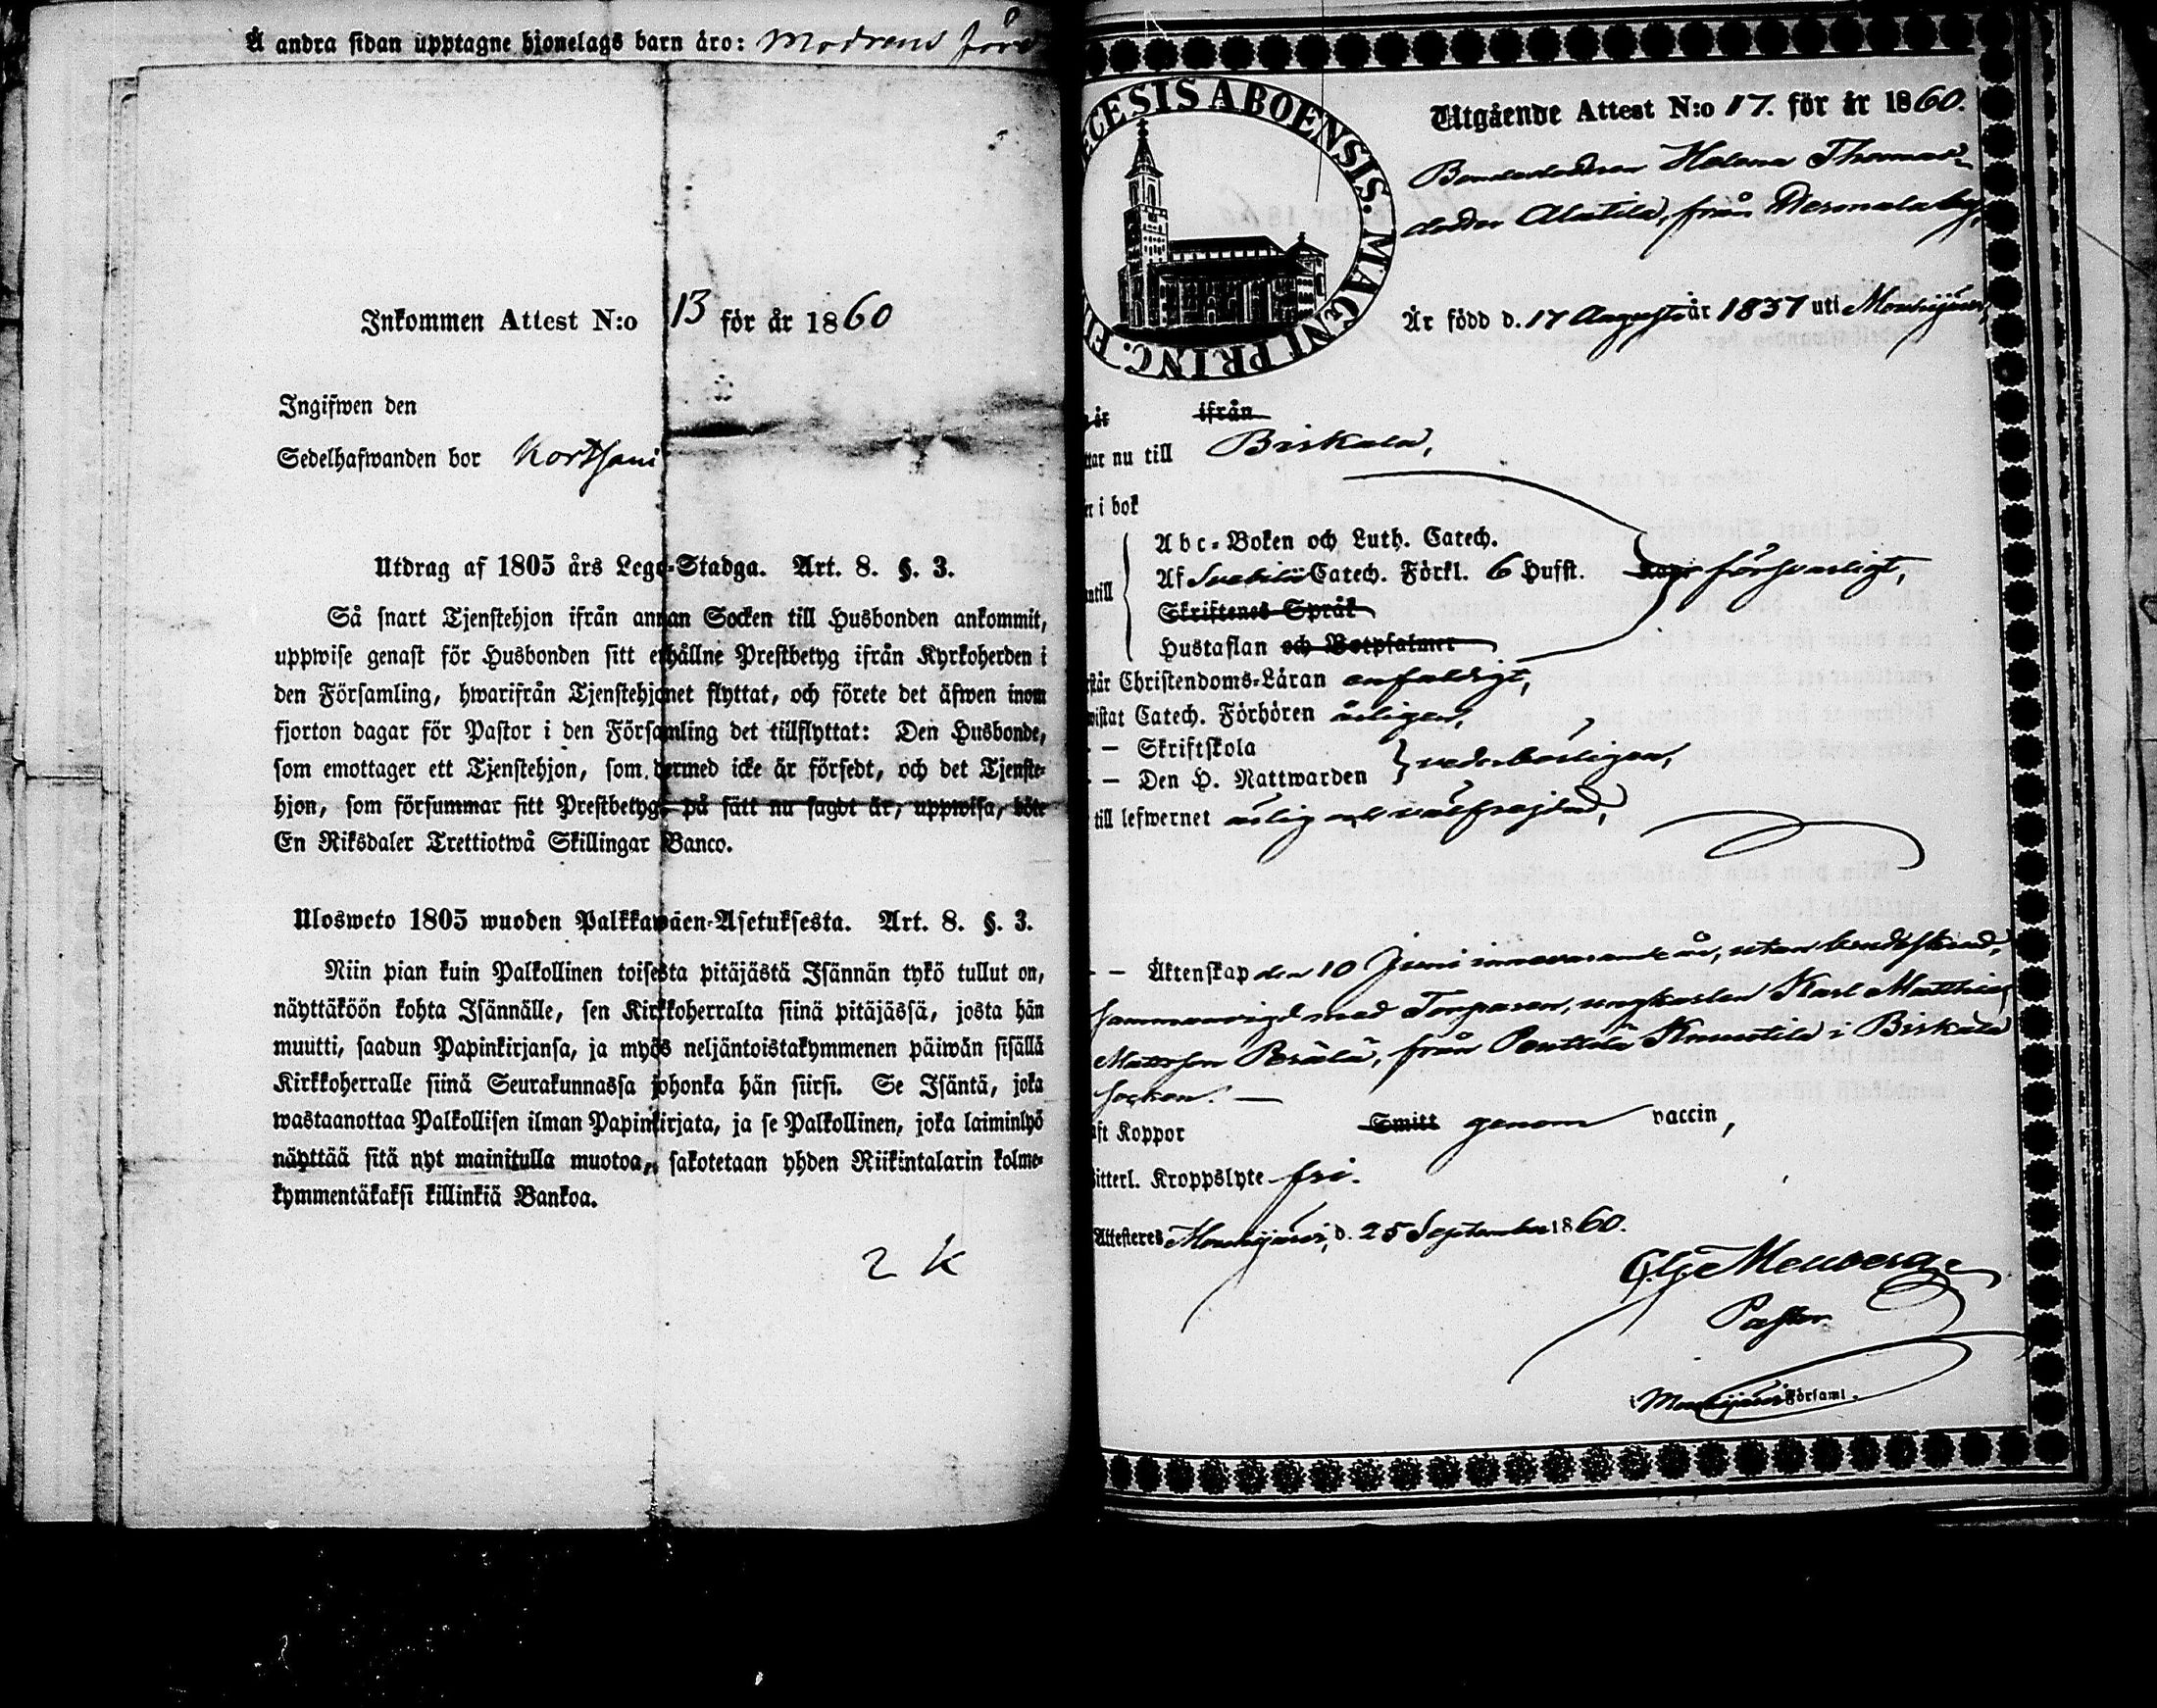 Å andra sidan upptagne hjonelags barn äro: Modrens
Inkommen Attest N:o 13 för år 1860
Ingifwen den
Sedelhafwanden bor
Utdrag af 1805 års Lego-Stadga. Art. 8. §. 3.
Så snart Tjenstehjon ifrån annan Socken till Husbonden ankommit,
uppwise genast för Husbonden sitt erhållne Prestbetyg ifrån Kyrkoherden i
den Församling, hwarifrån Tjenstehjonet flyttat, och förete det äfwen inom
fjorton dagar för Pastor i den Församling det tillflyttat: Den Husbonde,
som emottager ett Tjenstehjon, som dermed icke är försedt, och det Tjenste-
hjon, som försummar sitt Prestbetyg, på sätt nu sagdt är, uppwisa, böte
En Riksdaler Trettiotwå Skillingar Banco.
Ulosweto 1805 wuoden Palkkawäen-Asetuksesta. Art. 8. §. 3.
Niin pian kuin Palkollinen toisesta pitäjästä Isännän tykö tullut on,
näyttäköön kohta Isännälle, sen Kirkkoherralta siinä pitäjässä, josta hän
muutti, saadun Papinkirjansa, ja myös neljäntoistakymmenen päiwän sisällä
Kirkkoherralle siinä Seurakunnassa johonka hän siirsi. Se Isäntä, joka
wastaanottaa Palkollisen ilman Papinkirjata, ja se Palkollinen, joka laiminlyö
näyttää sitä nyt mainitulla muotoa, sakotetaan yhden Riikintalarin kolme-
kymmentäkaksi killinkiä Bankoa.
2 K
CESIS ABOENSIS. MAGNI PRINC. F
Utgående Attest N:o 17. för år 1860.
Bondedottren Helena Thomas-
dotter Alatila, från by,
Är född d. 17 Augusti år 1837 uti Mouhijärvi,
år ifrån
nu till Birkala,
i bok
Abc-Boken och Luth. Catech.
Af Svebilii Catech. Förkl. 6 Hufst. försvarligt,
Skriftenes Språk
Hustaflan och Botpsalmer
Christendoms-Läran enfaldigt,
Catech. Förhören årligen,
— Skriftskola
— Den H. Nattwarden } vederbörligen,
till lefwernet ärlig och välfrejdad,
— Äktenskap den 10 Juni innevarande år, utan brudskrud,
sammanvigd med Torparen, ungkarlen Karl Matthias
Mattsson Perälä, från Penttilä Knuutila i Birkala
Socken. —
Koppor Smitt genom vaccin,
Kroppslyte fri.
Attesteras Mouhijärvi, d. 25 September 1860.
Pastor
i Mouhijärvi Församl.